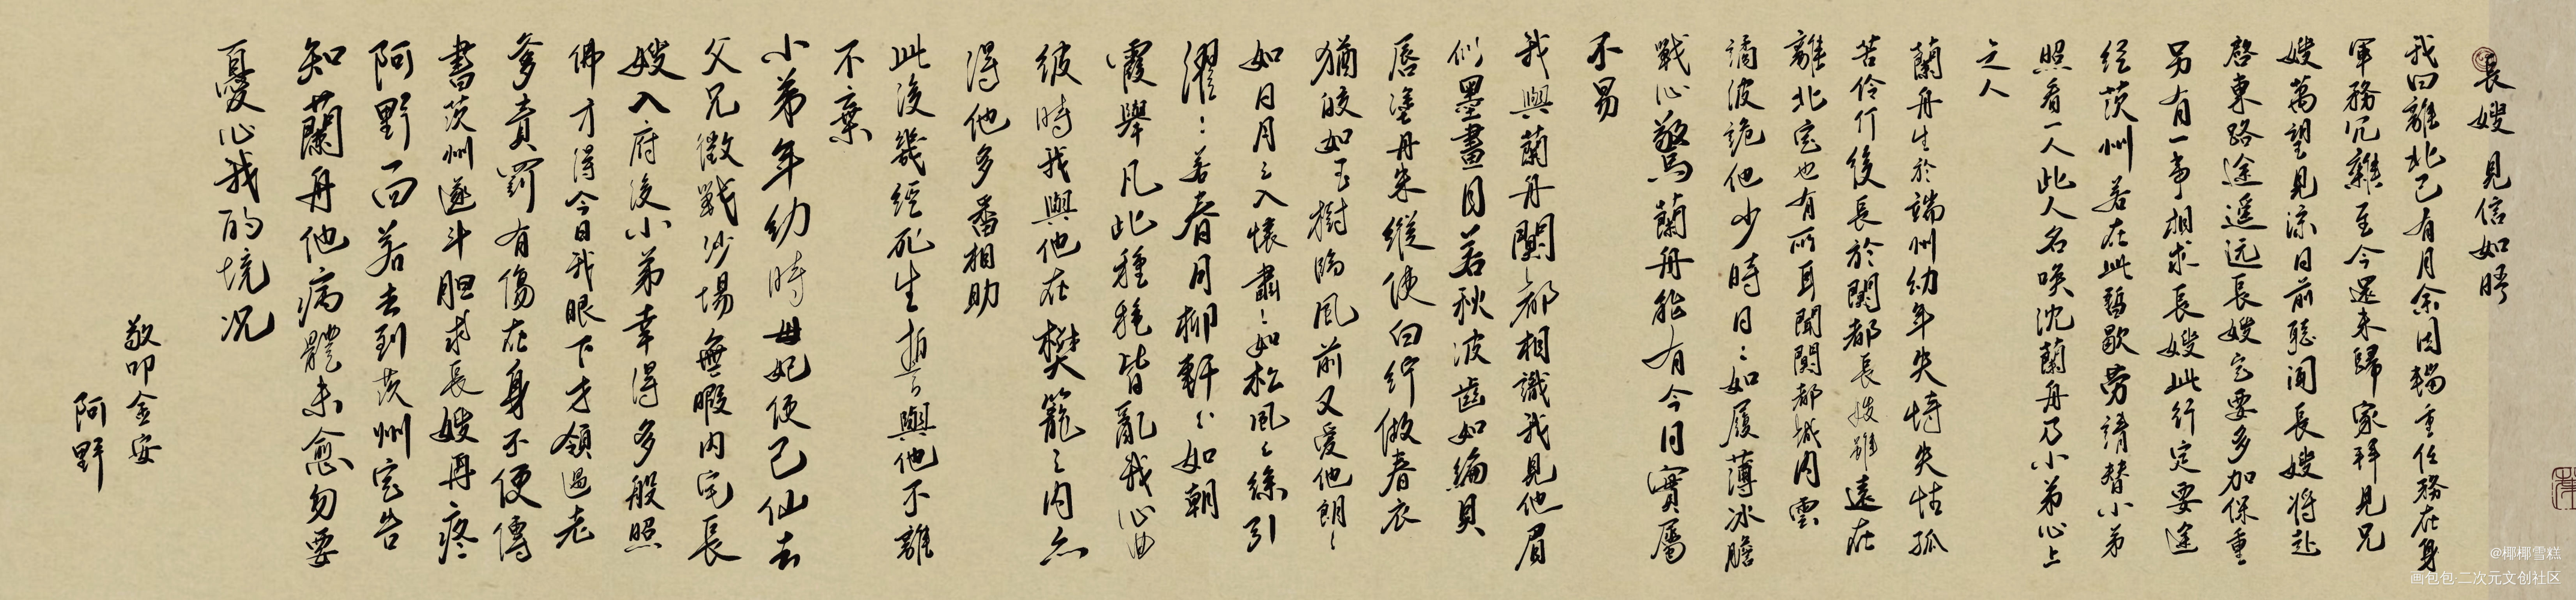 長嫂 見信如晤
我回離北已有月余因輜重任務在身
軍務冗雜至今還未歸家拜見兄
嫂萬望見諒日前聽聞長嫂將赴
啓東路途遥远長嫂定要多加保重
另有一事相求長嫂此行定要途
經茨州若在此暫歇劳請替小弟
照看一人此人名唤沈蘭舟乃小弟心上
之人
蘭舟生於端州幼年失恃失怙孤
苦伶仃後長於闃都長嫂雖遠在
離北定也有所耳聞闃都城内雲
譎波詭他少時日〻如履薄冰膽
戰心驚蘭舟能有今日實屬
不易
我與蘭舟闃都相識我見他眉
似墨畫目若秋波齒如編貝
唇塗丹朱縱使白紵做春衣
猶皎如玉樹臨風前又爱他朗〻
如日月之入懷肅〻如松風〻徐引
濯〻若春月柳軒〻如朝
霞舉凡此種種皆亂我心曲
彼時我與他在樊籠之内亦
得他多番相助
此後幾經死生拍与與他不離
不棄
小弟年幼時母妃便已仙去
父兄徵戰沙場無暇内宅長
嫂入府後小弟幸得多般照
佛才得今日我眼下才領過老
爹責罰有傷在身不便傳
書茨州遂斗胆求長嫂再疼
阿野一回若去到茨州定告
知蘭舟他病體未愈勿要
憂心我的境况
敬叩金安
阿野
@椰椰雪糕
画包包·二次元文创社区